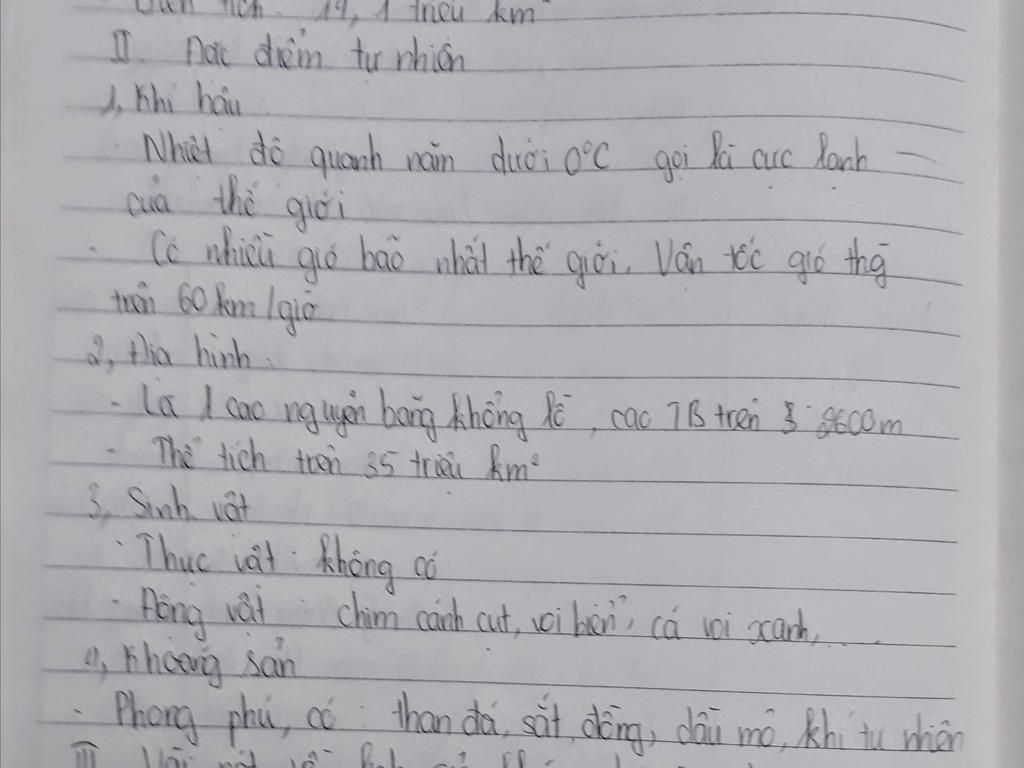 Diện tích: 14, 1 triệu km²
II. Đặc điểm tự nhiên
1, Khí hậu
- Nhiệt độ quanh năm dưới 0°C gọi là cực lạnh
của thế giới
- Có nhiều gió bão nhất thế giới. Vận tốc gió thg
trên 60km/giờ
2, Địa hình.
- Là 1 cao nguyên băng khổng lồ, cao TB trên 2600m
- Thể tích trên 35 triệu km³
3, Sinh vật
- Thực vật: không có
- Động vật: chim cánh cụt, voi biển, cá voi xanh, ...
4, Khoáng sản
- Phong phú, có: than đá, sắt, đồng, dầu mỏ, khí tự nhiên
III Vài nét về